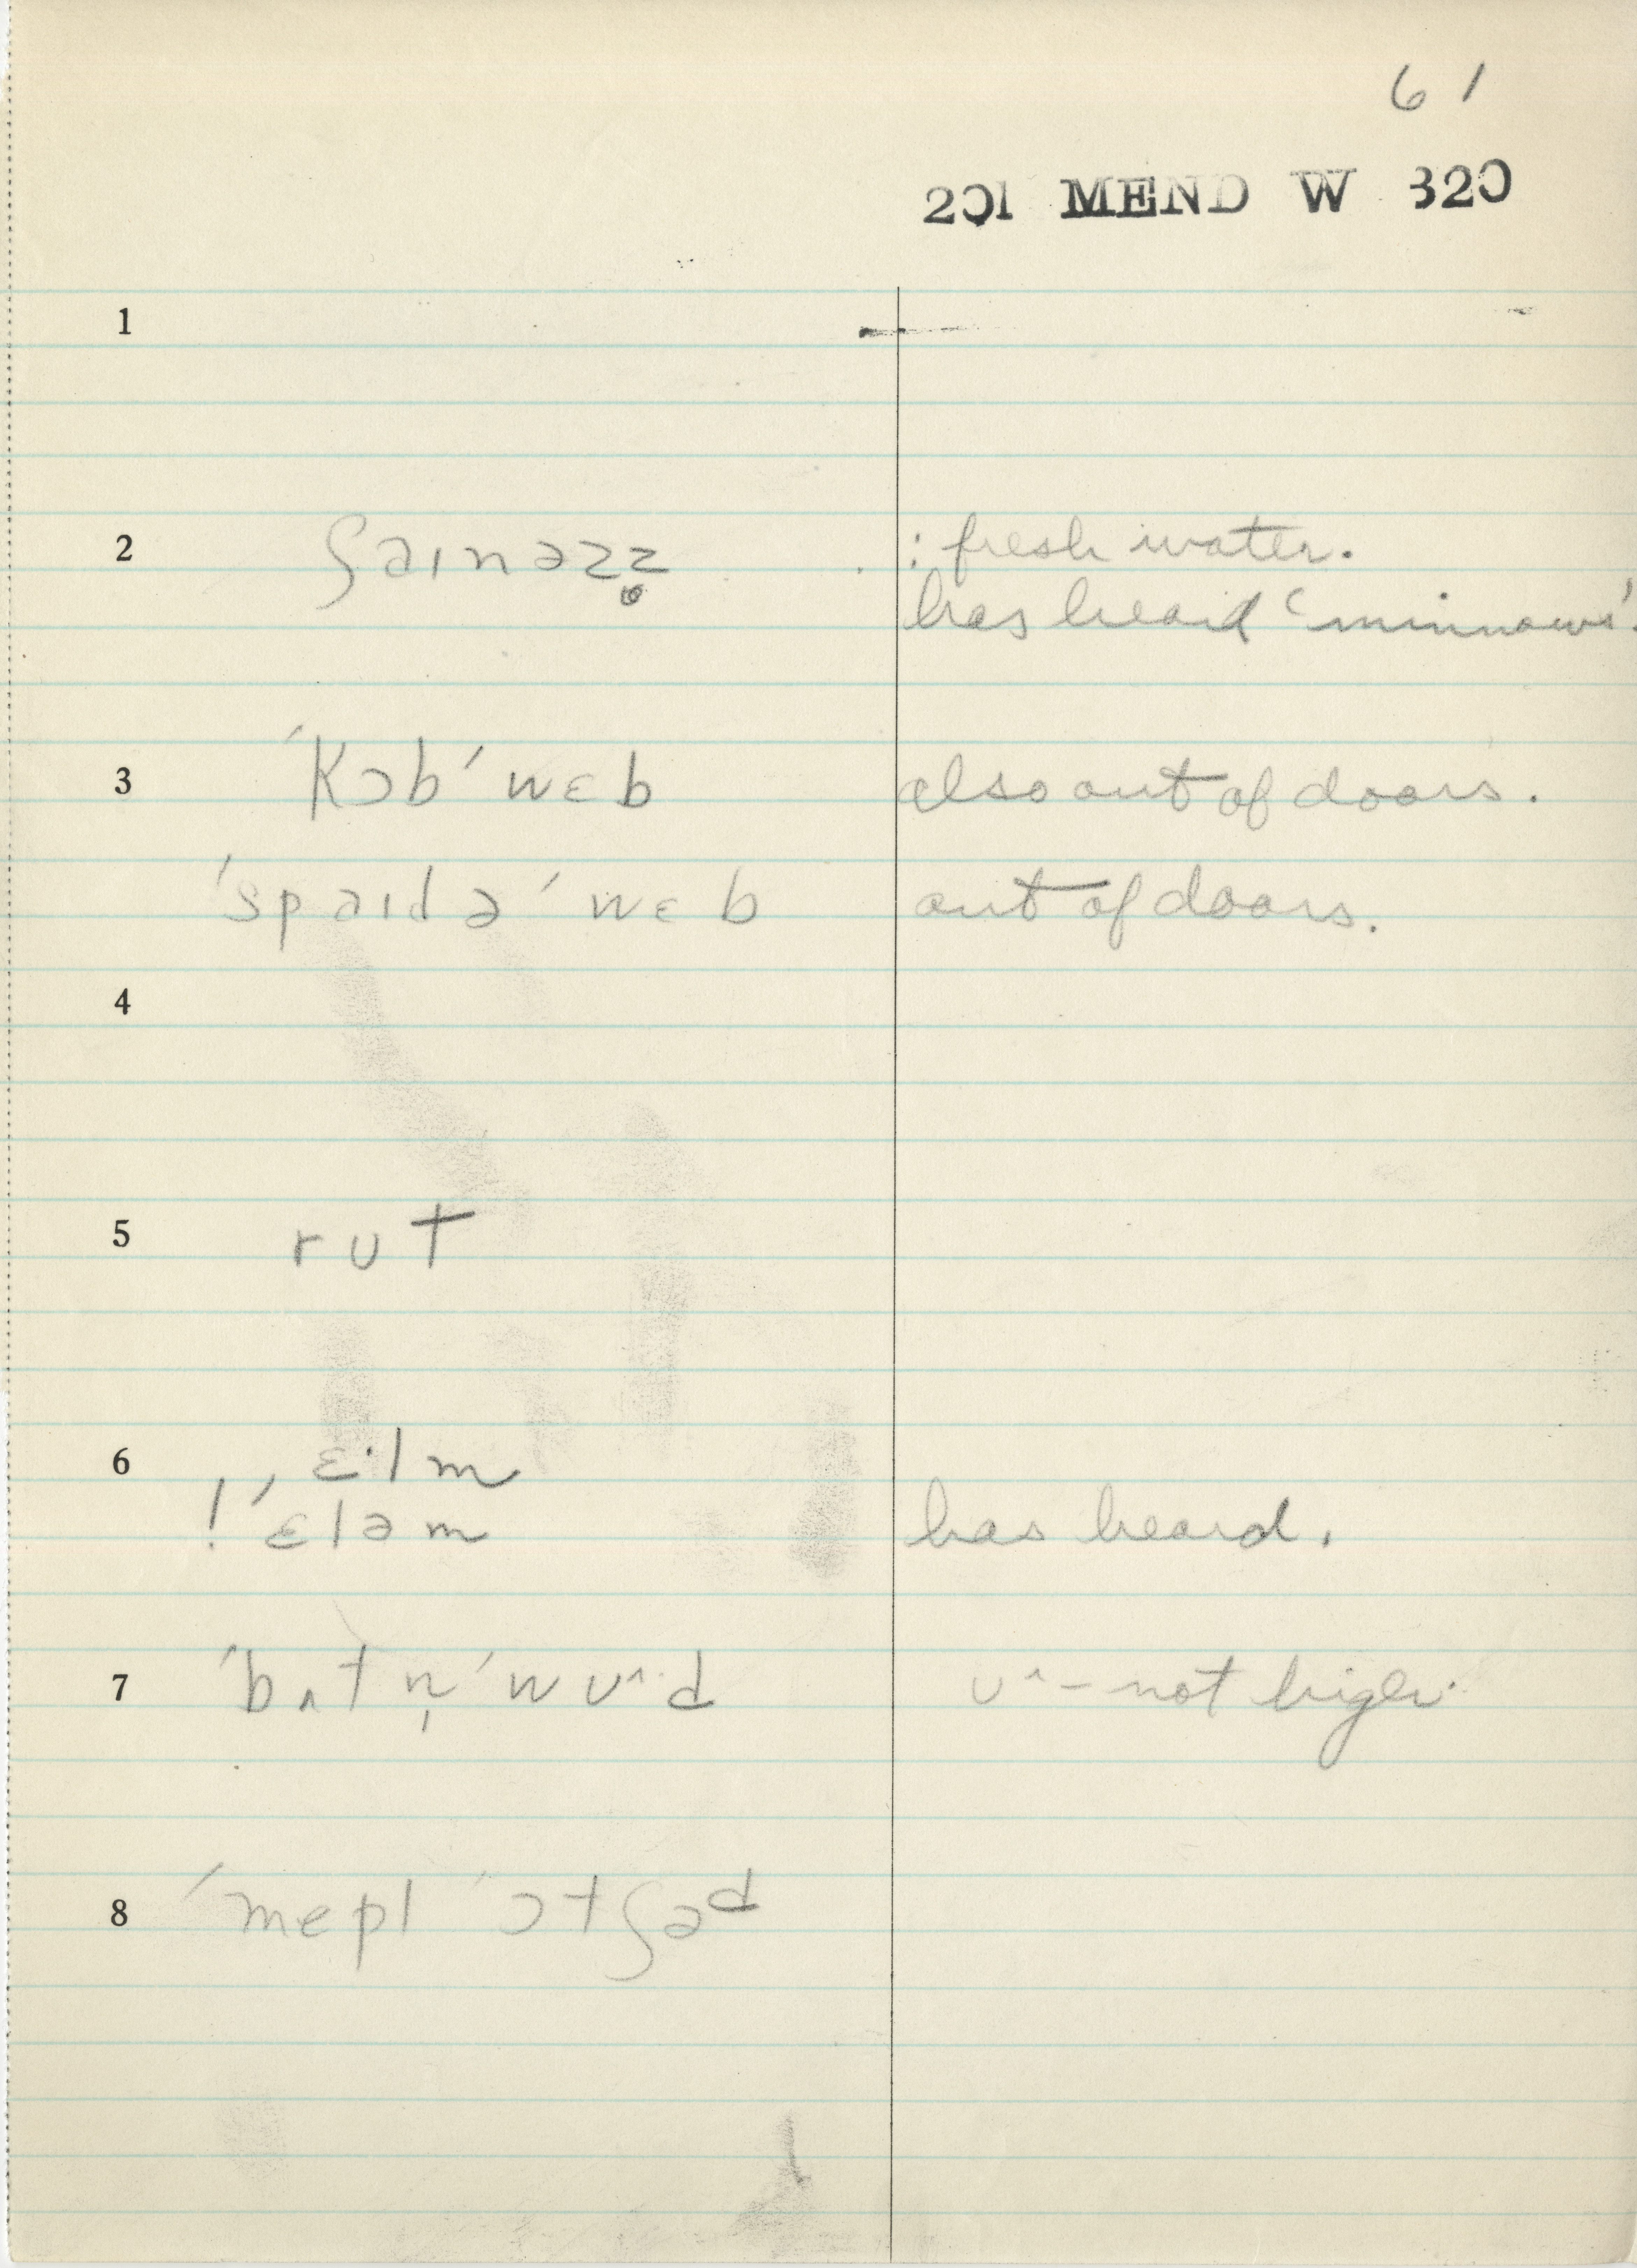 61
201 MEND W 320
1
2 ʃaɪnəzz̥ : fresh water.
has heard ‘minnows’.
3 ˈkɔbˈwɛb also out of doors.
ˈspaɪdəˈwɛb out of doors.
4
5 rʊt
6 ɛ·lm
! ˈɛləm has heard.
7 ˈbʌtn̩ˈwʊ^·d ʊ^ – not higher
8 ˈmepl ˈɔtʃəd